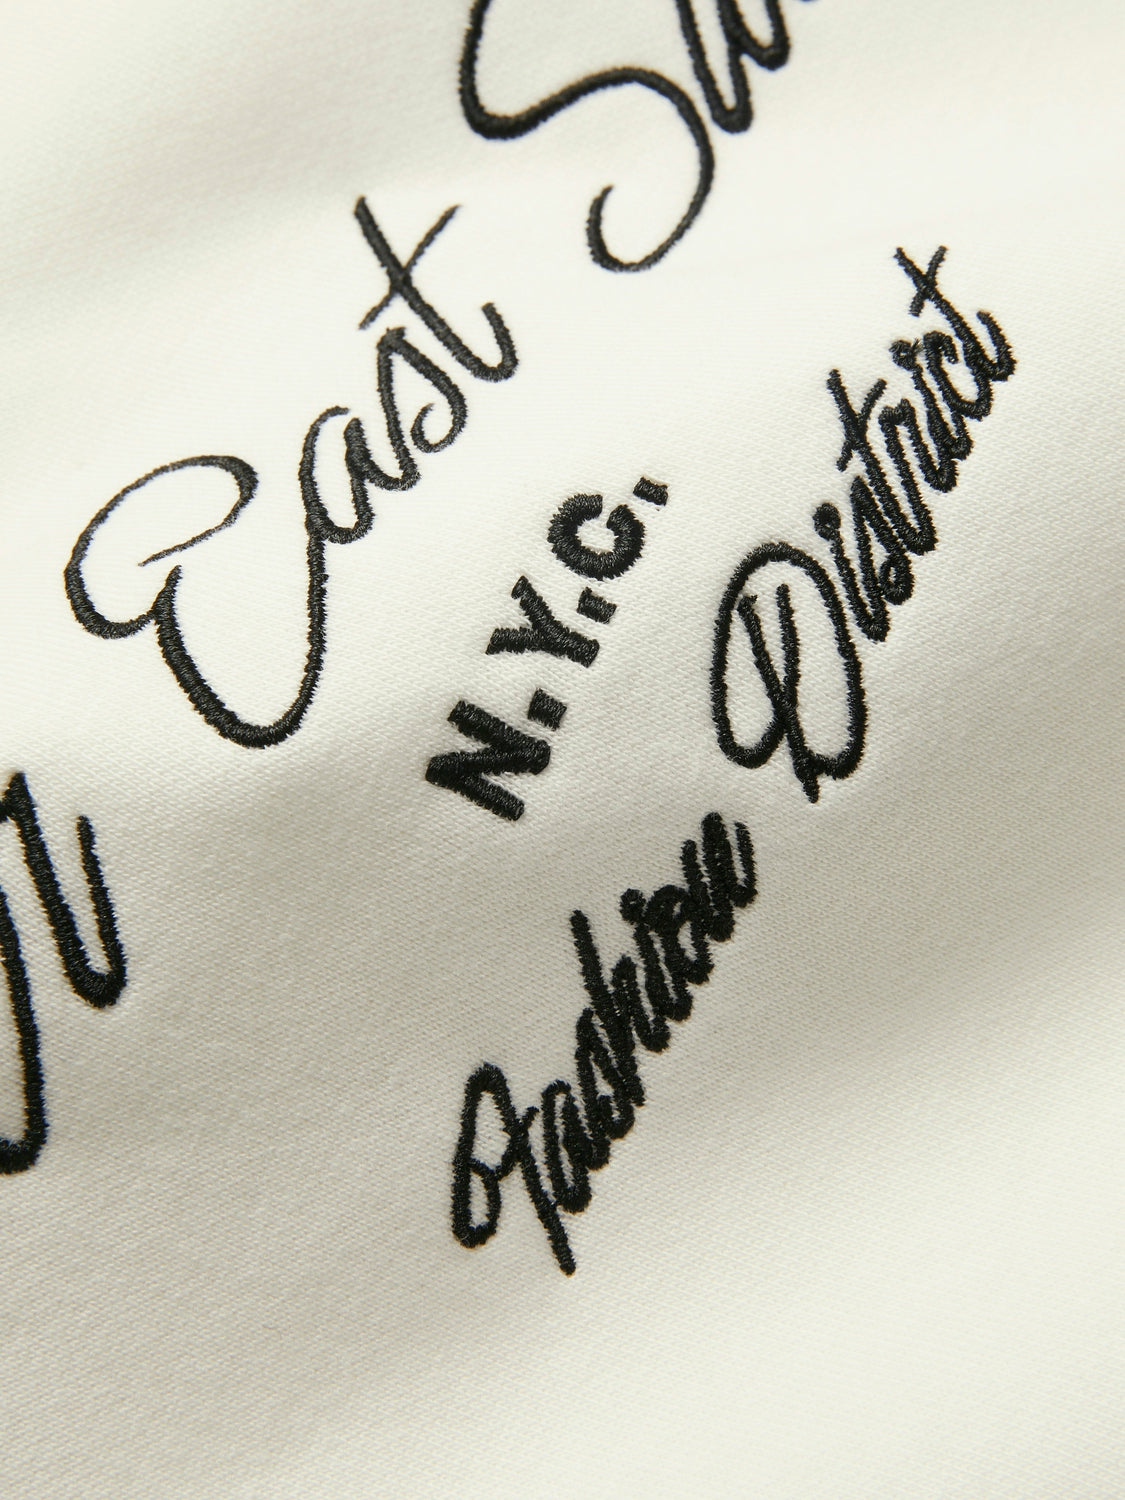 East
N.Y.C.
Fashion District